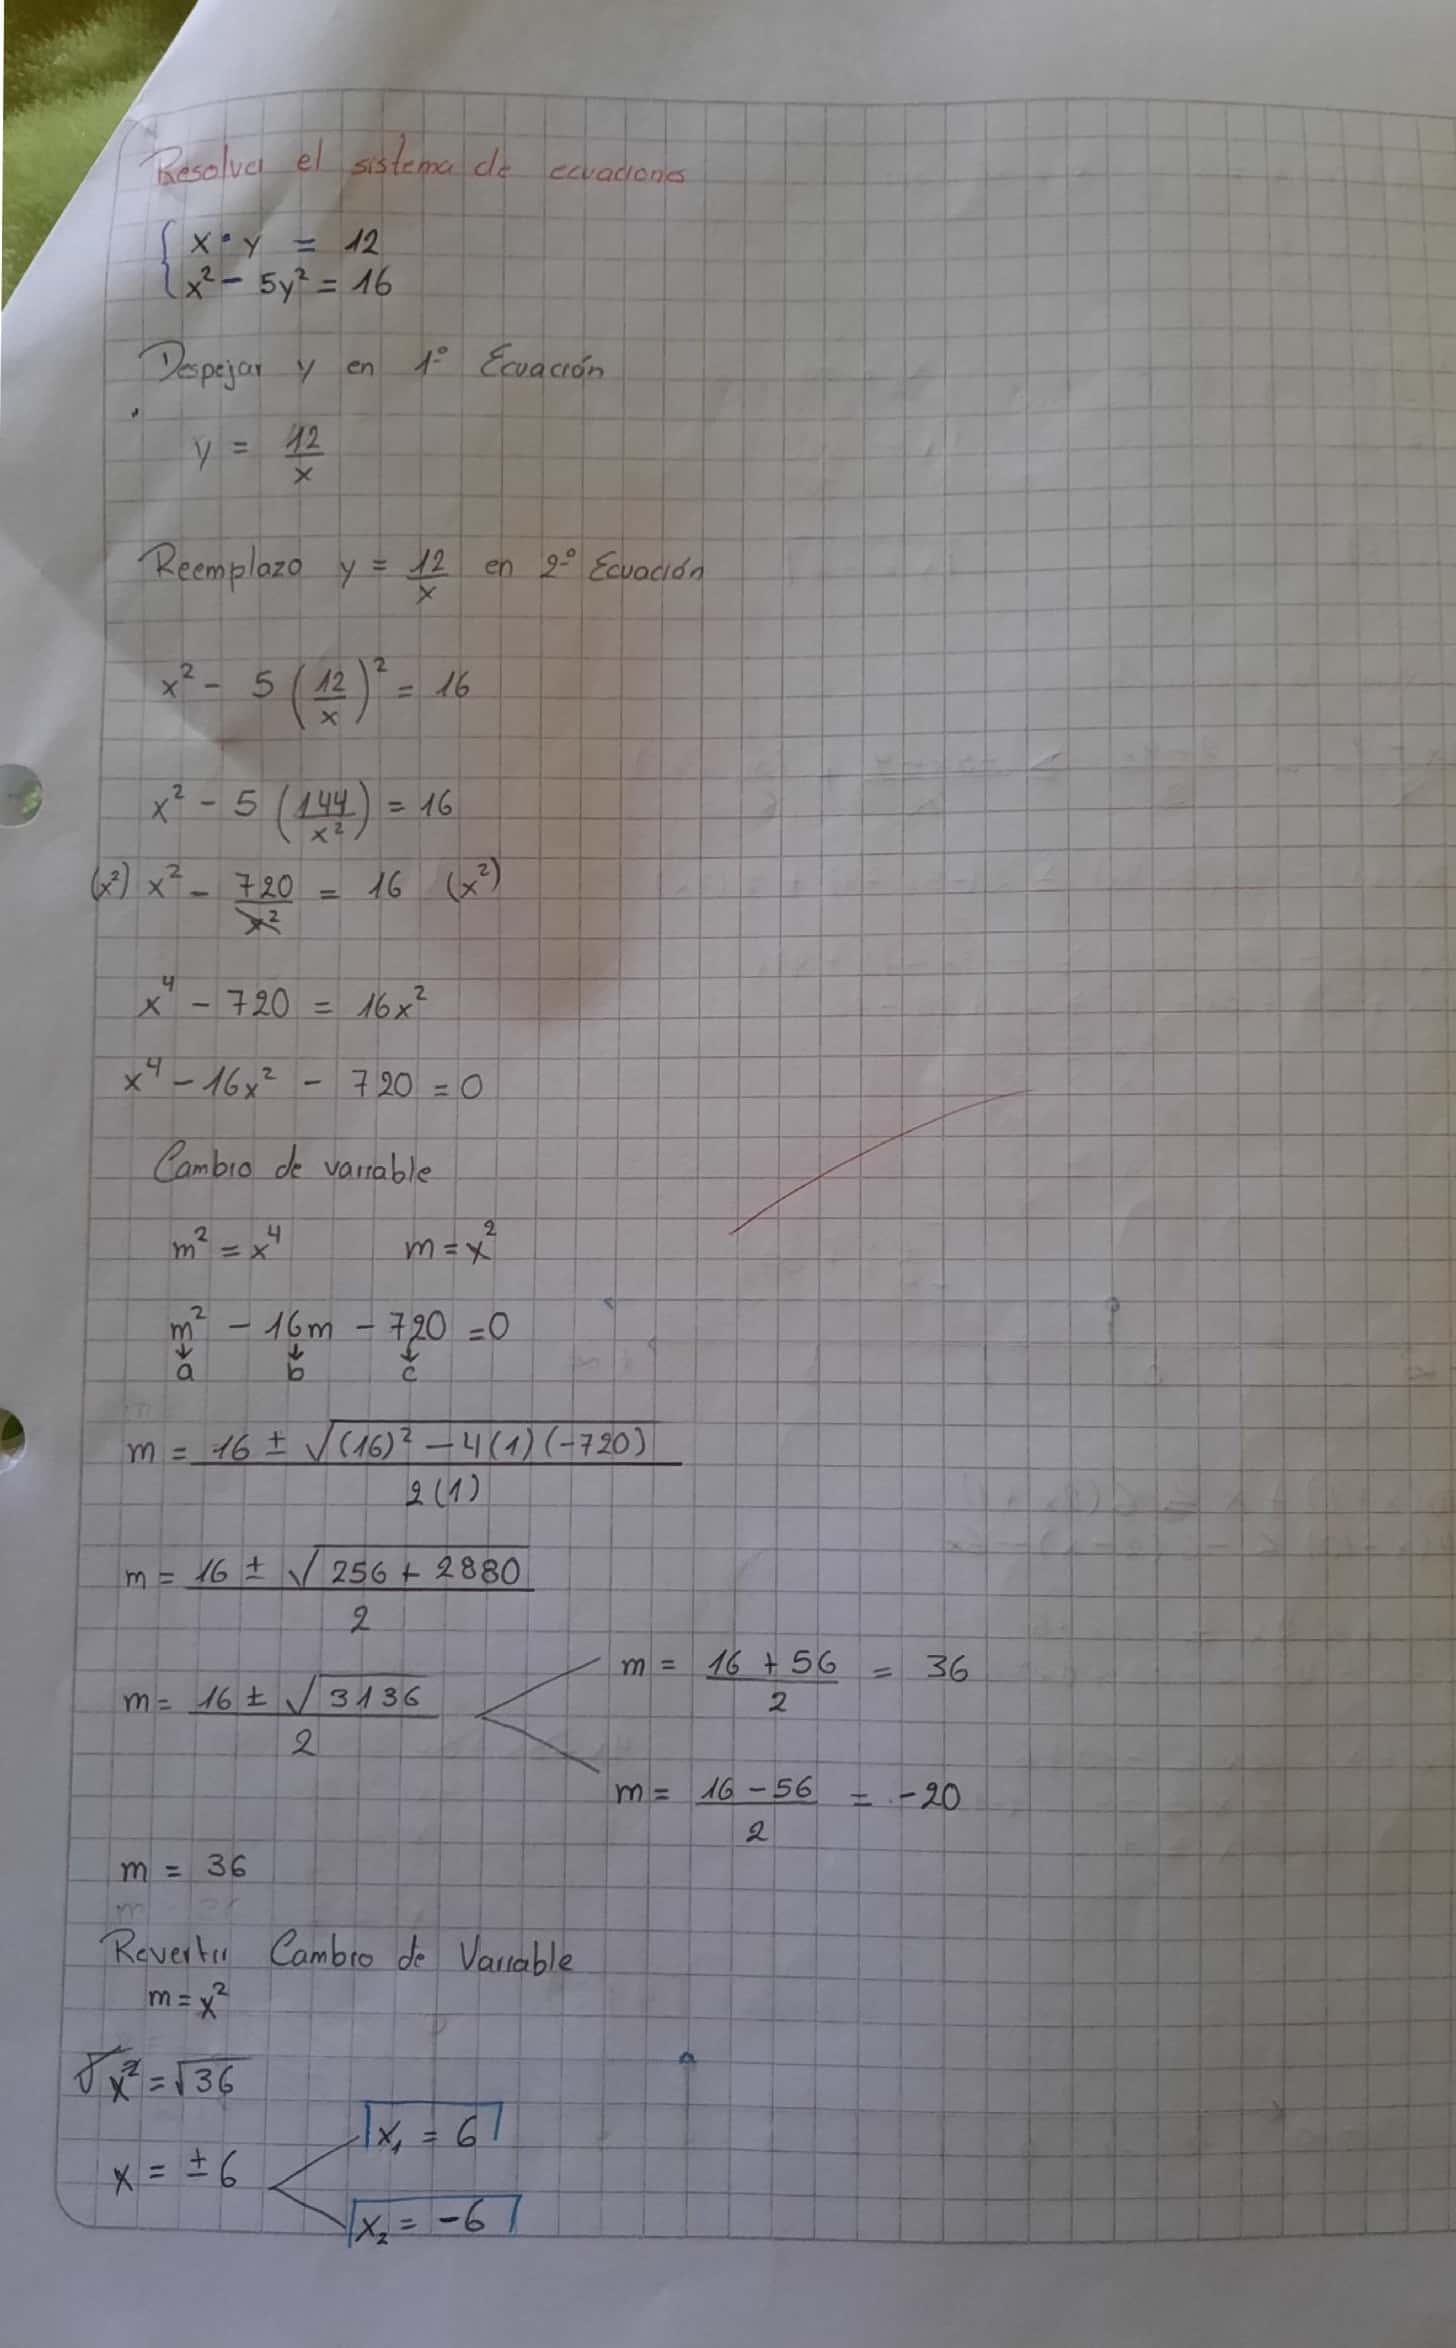 Resolver el sistema de ecuaciones
x · y = 12
x² - 5y² = 16
Despejar y en 1º Ecuación
y = 12/x
Reemplazo y = 12/x en 2º Ecuación
x² - 5 (12/x)² = 16
x² - 5 (144/x²) = 16
(x²) x² - 720/x² = 16 (x²)
x⁴ - 720 = 16x²
x⁴ - 16x² - 720 = 0
Cambio de variable
m² = x⁴ m = x²
m² - 16m - 720 = 0
a b c
m = 16 ± √(16)² - 4(1)(-720) / 2(1)
m = 16 ± √256 + 2880 / 2
m = 16 ± √3136 / 2
m = 16 + 56 / 2 = 36
m = 16 - 56 / 2 = -20
m = 36
Revertir Cambio de Variable
m = x²
√x² = √36
x = ±6
x₁ = 6
x₂ = -6